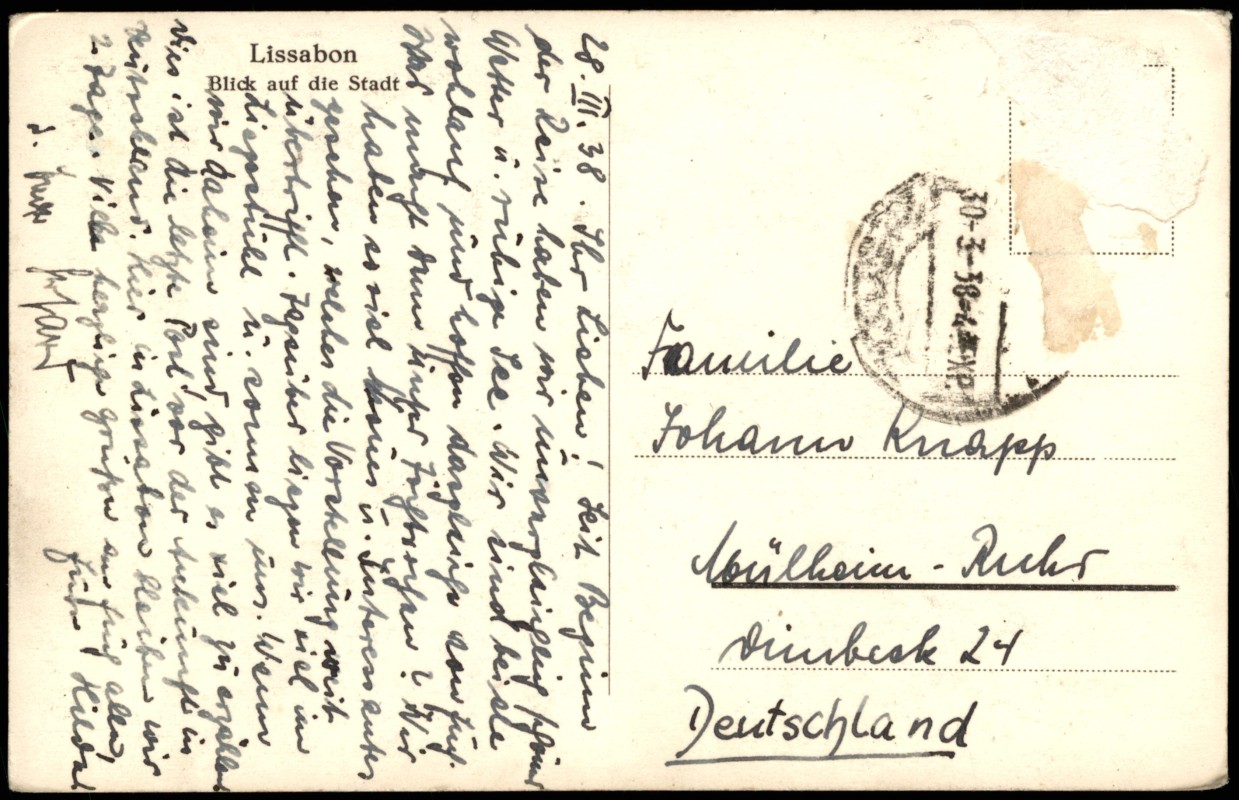 Lissabon
Blick auf die Stadt
28.III.38. Ihr Lieben! Seit Beginn
der Reise haben wir unvergleichlich schönes
Wetter u. ruhige See. Wir sind beide
wohlauf und hoffen dasgleiche von Euch.
Was macht denn unser Töchterchen? Wir
haben so viel Schönes u. Interessantes
gesehen, welches die Vorstellung weit
übertrifft. Tagsüber liegen wir viel im
Liegestuhl u. sonnen uns. Wenn
wir daheim sind, gibt es viel zu erzählen
Dies ist die letzte Post vor der Ankunft in
Deutschland. Hier in Lissabon bleiben wir
2 Tage. Viele herzliche Grüsse an Euch allen,
Eure Hilde
u.
30-3-38-4
EXP.
Familie
Johann Knapp
Mülheim-Ruhr
Dimbeck 24
Deutschland